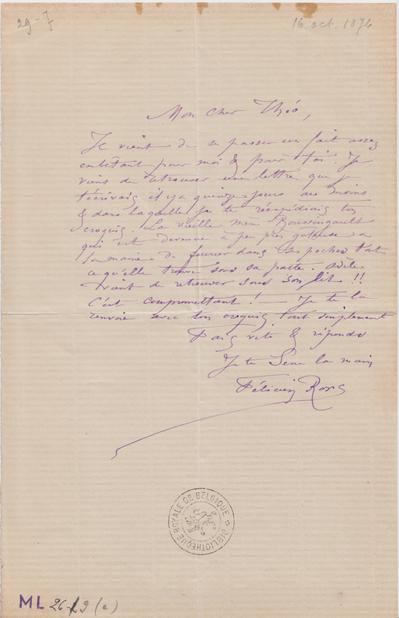 29-7
16 oct. 1876
Mon cher Théo,
Il vient de se passer un fait assez
embêtant pour moi & pour toi. Je
viens de retrouver une lettre que je
t'écrivais il y a quinze jours au moins
& dans laquelle je te réexpédiais ton
croquis. La vieille mère Boussingault
qui est devenue à peu près gâteuse a
la manie de fourrer dans ses poches tout
ce qu'elle trouve sous sa patte.
vient de retrouver sous son lit !!
C'est compromettant ! — Je te la
renvoie avec ton croquis tout simplement
vite & réponds
Je te serre la main
Félicien Rops
BIBLIOTHÈQUE ROYALE DE BELGIQUE
ML 26 9 (a)